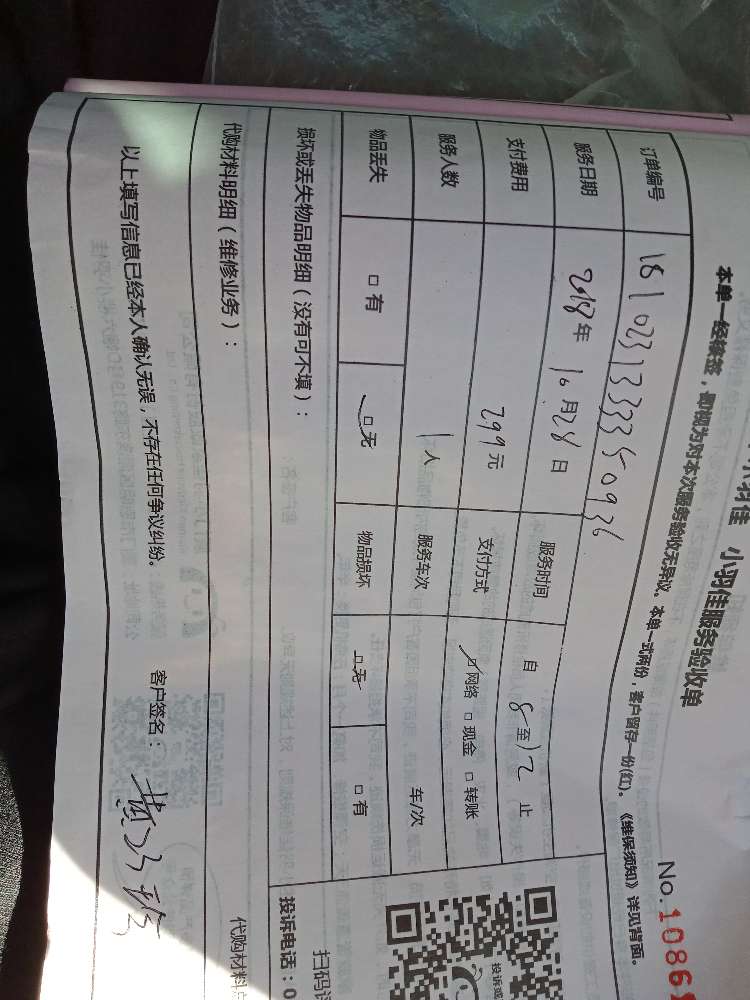 小羽佳 小羽佳服务验收单
No.1086
本单一经续签，即视为对本次服务验收无异议。本单一式两份，客户留存一份(红)。《维保须知》详见背面。
订单编号 181023133350936
服务日期 2018年10月28日 服务时间 自8至12止
支付费用 299元 支付方式 网络 现金 转账
服务人数 1人 服务车次 车/次
物品丢失 有 无 物品损坏 无 有
损坏或丢失物品明细（没有可不填）：
代购材料明细（维修业务）：
代购材料
以上填写信息已经本人确认无误，不存在任何争议纠纷。 客户签名：
扫码
投诉电话：0
投诉或